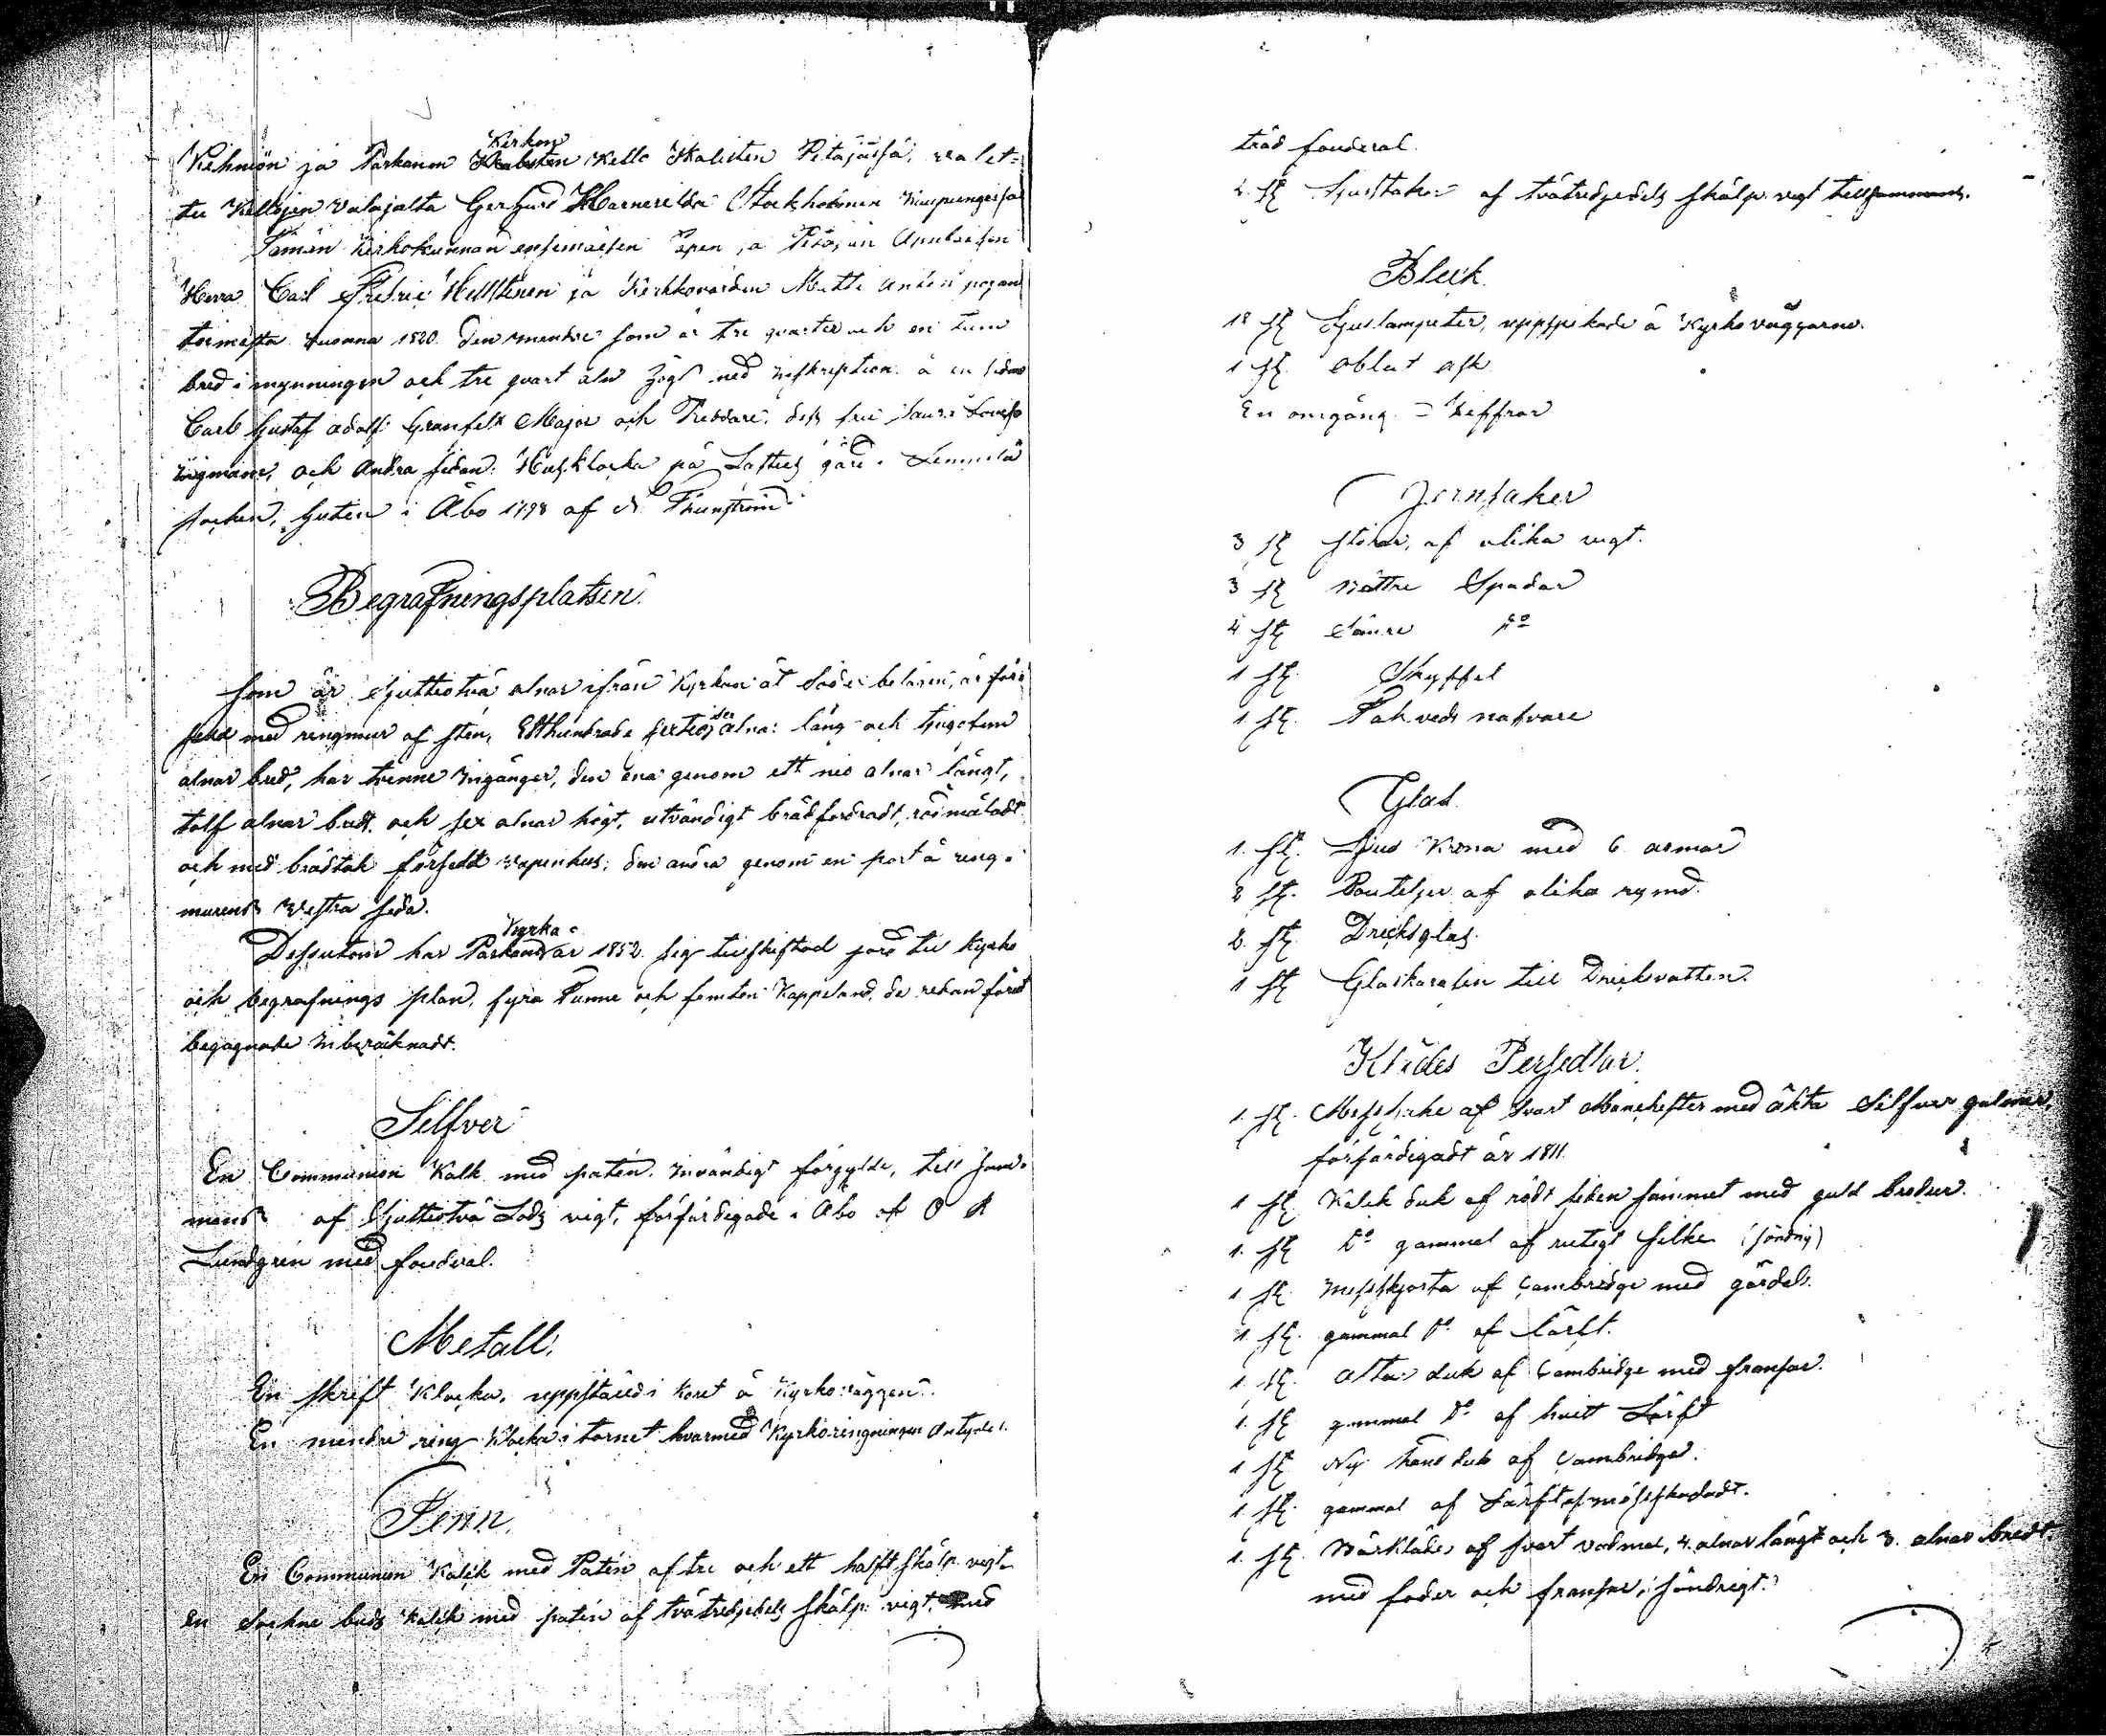 Kirkon
Kihniön ja Parkanon Kello Pitäjässä, valet=
tu Kellojen Valajalta Gerhard Hornerilda Stockholmin Kaupungissa
Tämän Kirkokunnan ensimäisen Papin ja Pitäjän Apulaisen
Herra Carl Fredric Hellstenin ja Kirkkovärdin Matti Antin pojan
toimesta Vuonna 1820. Den mindre som är tre qvarter och en tum
bred i mynningen och tre qvart aln hög med inskription å en sidan
Carl Gustaf Adolf Granfelt Major och Riddare, dess fru Lovisa
och Andra sidan: Husklocka på gård i Lemmilä
socken, Guten i Åbo 1798 af Thunström
Begrafningsplatsen.
som är Sjuttiotvå alnar ifrån Kyrkan åt Söder belägen, är för=
sedd med ringmur af sten, Etthundrade sextiosex alnar lång och tjugofem
alnar bred, har tvenne Ingångar, den ena genom ett nio alnar långt,
tolf alnar bredt och sex alnar högt, utvändigt brädfodradt, rödmåladt
och med brädtak försedt vapenhus, den andra genom en port å ring=
murens Westra sida.
Dessutom har Parkano Kyrka år 1852 sig tillskiftad jord till Kyrko
och begrafnings plan, fyra Tunne och femton Kappeland, de redan förut
begagnade inberäknadt.
Silfver
En Communion Kalk med patén, invändigt förgylde, till sam=
mans af Sjuttiotvå Lods vigt, förfärdigade i Åbo af
Lundgren med fouderal.
Metall.
En skrift Klocka, uppställd i Koret å Kyrkoväggen.
En mindre ring Klocka i tornet hvarmed Kyrkoringningen antydes.
Tenn.
En Communion Kalk med Patén af tre och ett halft skålp. vigt
En Sockne buds Kalk med patén af tvåtredjedels skålp. vigt, med
träd fouderal.
2. st. Ljusstakar af tvåtredjedels skålp. vigt tillsammans.
Bleck.
18 st Ljuslampeter, uppspikade å Kyrkoväggarne.
1 st. oblat ask
En omgång Ziffror
Jernsaker
3 st störar, af olika vigt.
3 st bättre Spadar
4 st sämre do
1 st. Skyffel
1. st. Takveds nafvare
Glas.
1. st. Ljus Krona med 6 armar
2 st. Bouteljer af olika rymd.
2. st. Dricksglas.
1 st Glaskarafin till Dricksvatten.
Klädes Persedlar.
1. st. Messhake af svart Manchester med äkta Silfver galoner,
förfärdigadt år 1811.
1 st. Kalk duk af rödt siden sammet med guld broderi.
1. st. Do gammal af rutigt silke (söndrig)
1 st. Messskjorta af Cambridge med gördel.
1. st. gammal do. af lärft.
1. st. Altar duk af Cambridge med fransar.
1. st gammal Do af hvitt Lärft
1 st Ny hand duk af Cambridge.
1. st. gammal af Lärft
1. st. Bårkläde af svart vadmal, 4. alnar långt och 3. alnar bredt.
med foder och fransar, söndrigt.